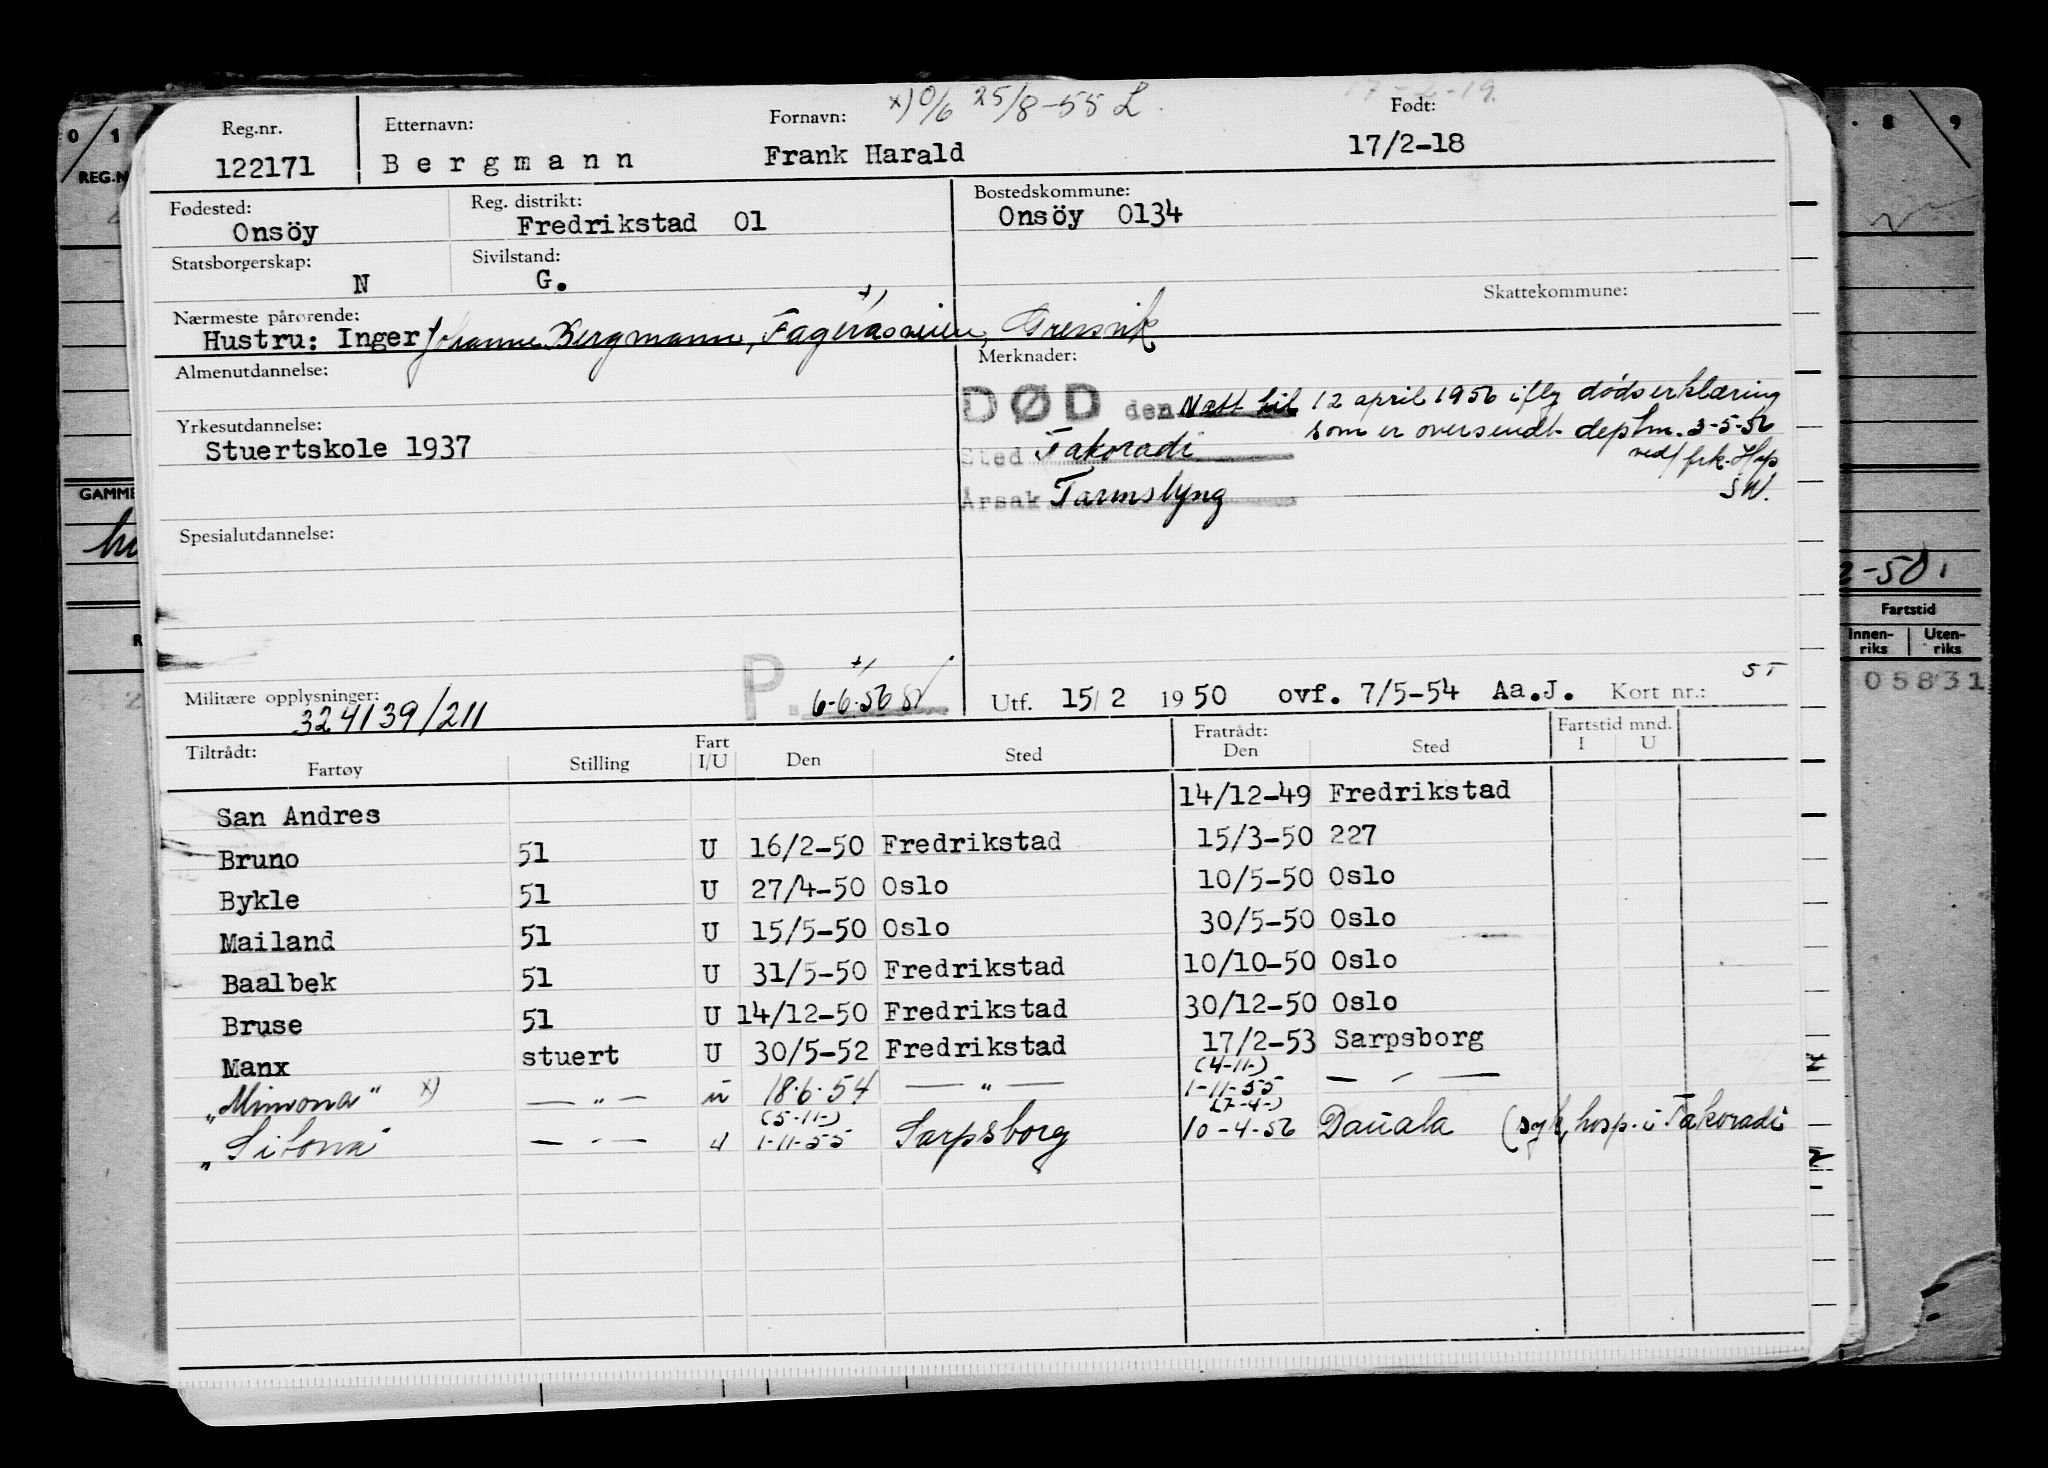 x) 0/6 25/8-55 L.
17-2-19.
Reg.nr. Etternavn: Fornavn: Født:
122171 Bergmann Frank Harald 17/2-18
Fødested: Reg. distrikt: Bostedskommune:
Onsöy Fredrikstad 01 Onsöy 0134
Statsborgerskap: Sivilstand:
N G.
Skattekommune:
Nærmeste pårørende:
Hustru: Inger Johanne Bergmann, Fageraasveien, Gressvik
Almenutdannelse: Merknader:
DØD den Natt til 12 april 1956 iflg dødserklæring
som er oversendt deptm. 3-5-56
ved/ frk. Hop
SW.
Sted Takoradi
Årsak Tarmslyng
Yrkesutdannelse:
Stuertskole 1937
Spesialutdannelse:
P. 6-6-56
Militære opplysninger:
324139/211
Utf. 15/2 1950 ovf. 7/5-54 Aa.J. Kort nr.: 5T
Tiltrådt: Fratrådt: Fartstid mnd.
Fartøy Stilling Fart I/U Den Sted Den Sted I U
San Andres 14/12-49 Fredrikstad
Bruno 51 U 16/2-50 Fredrikstad 15/3-50 227
Bykle 51 U 27/4-50 Oslo 10/5-50 Oslo
Mailand 51 U 15/5-50 Oslo 30/5-50 Oslo
Baalbek 51 U 31/5-50 Fredrikstad 10/10-50 Oslo
Bruse 51 U 14/12-50 Fredrikstad 30/12-50 Oslo
Manx stuert U 30/5-52 Fredrikstad 17/2-53 Sarpsborg
(4-11-)
"Mimona" x) — " — u 18.6.54 — " — 1-11-55 — " —
(5-11-) (7-4-)
"Sitona" — " — u 1-11-55 Sarpsborg 10-4-56 Dauala (syk, hosp. i Takoradi
0/1
REG.N
GAMME
8/9
2-50.
Fartstid
Innen-riks Uten-riks
05831